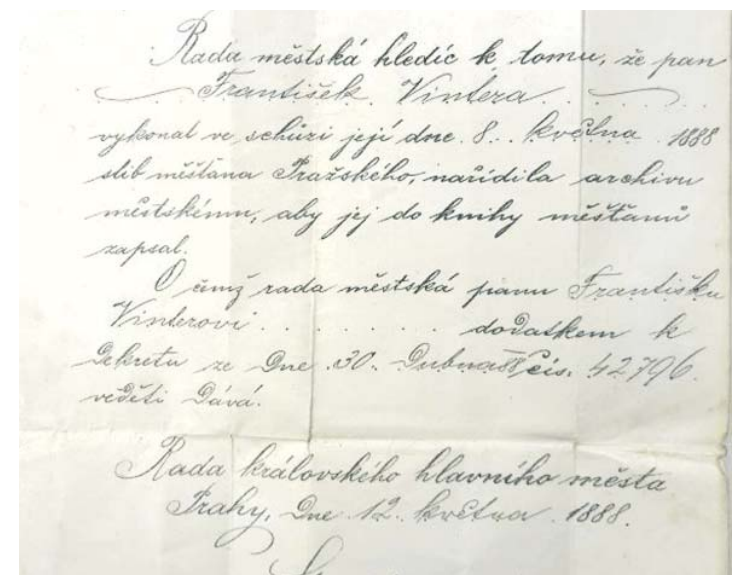 Rada městská hledíc k tomu, že pan
František Vintera
vykonal ve schůzi její dne 8. května 1888
slib měšťana Pražského, nařídila archivu
městskému, aby jej do knihy měšťanů
zapsal.
O čemž rada městská panu Františku
Vinterovi . . . . . . . dodatkem k
dekretu ze dne 30. dubna 88 čís. 42796
věděti dává.
Rada královského hlavního města
Prahy, dne 12. května 1888.